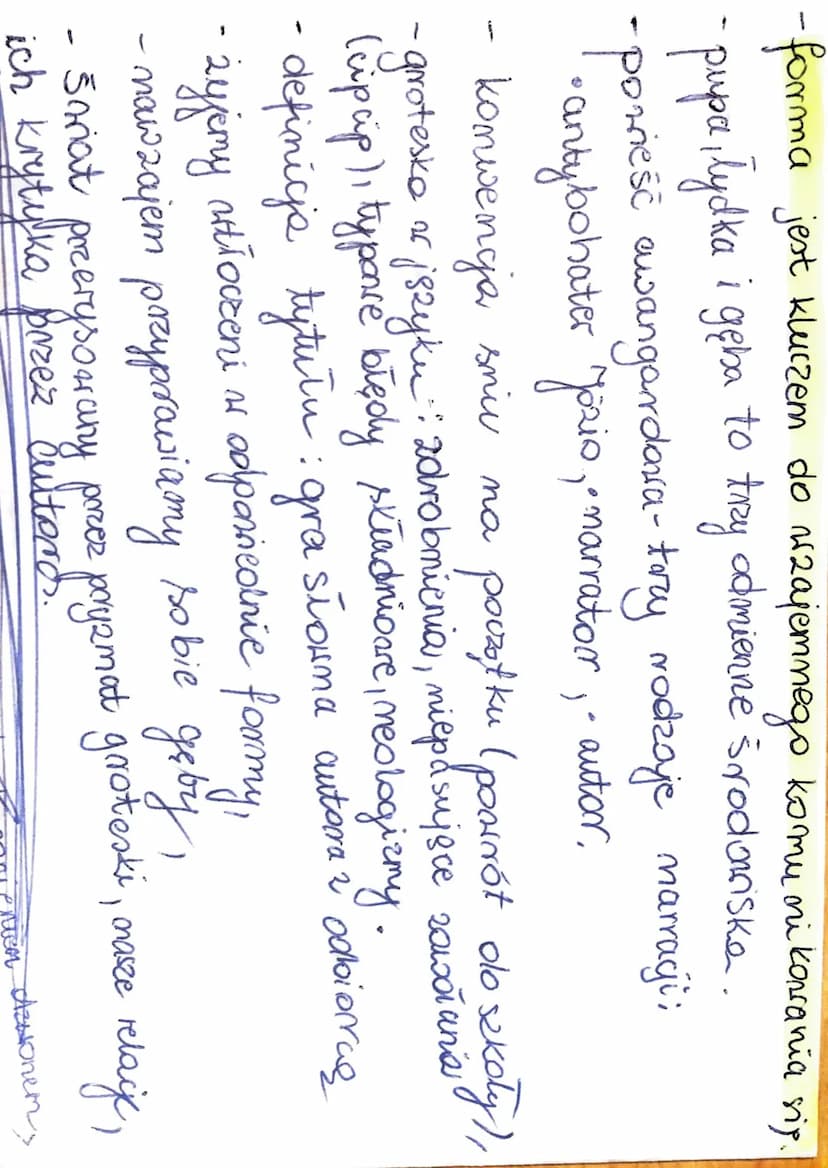 - forma jest kluczem do wzajemnego komunikowania się.
- pupa, łydka i gęba to trzy odmienne środowiska.
- powieść awangardowa - trzy rodzaje narracji:
• antybohater Józio, • narrator, • autor.
- konwencja snu na początku (powrót do szkoły),
- groteska w języku: zdrobnienia, niepasujące zawołania
(cipcip), typowe błędy składniowe, neologizmy.
- definicja tytułu: gra słowna autora z odbiorcą
- żyjemy wtłoczeni w odpowiednie formy,
- nawzajem przyprawiamy sobie gęby,
- Świat przerysowany przez pryzmat groteski, nasze relacje,
ich krytyka przez autora.
dzwonem,